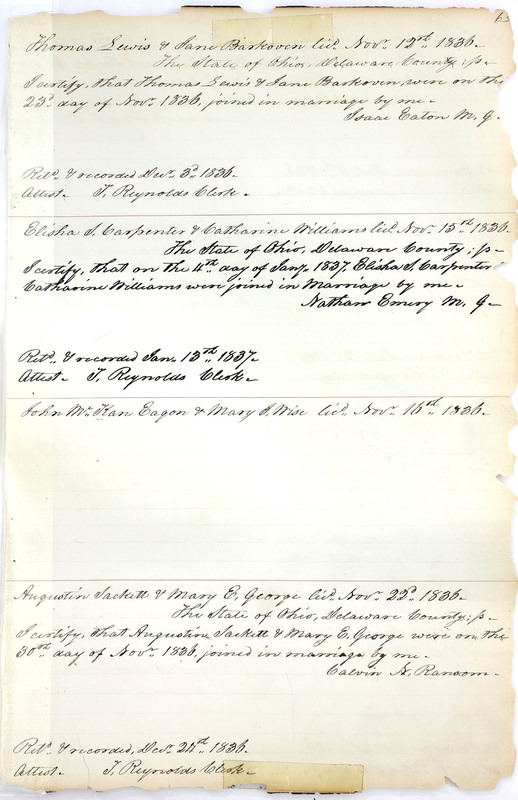 Thomas Lewis & Jane Barkoven lic.d Nov.r 12nd. 1836.
The State of Ohio, Delaware County; ss
I certify, that Thomas Lewis & Jane Barkoven, were on the
23d. day of Nov.r 1836. joined in marriage by me.
Isaac Eaton M. G.
Ret.d & recorded Dec.r 3d. 1836.
Attest. T. Reynolds Clerk.
Elisha S. Carpenter & Catharine Williams lic.d Nov.r 15th. 1836.
The State of Ohio, Delaware County; ss
I certify, that on the 4th. day of Jany. 1837. Elisha S. Carpenter &
Catharine Williams were joined in Marriage by me
Nathan Emery M. G.
Ret.d & recorded Jan. 13th. 1837.
Attest. T. Reynolds Clerk.
John Mc.Kan Eagon & Mary P. Wise lic.d Nov.r 16th. 1836.
Augustin Sackett & Mary E. George lic.d Nov.r 22d. 1836.
The State of Ohio, Delaware County; ss
I certify, that Augustin Sackett & Mary E. George were on the
30th. day of Nov.r 1836, joined in marriage by me
Calvin N. Ransom.
Ret.d & recorded, Dec.r 24th. 1836.
Attest. T. Reynolds Clerk.